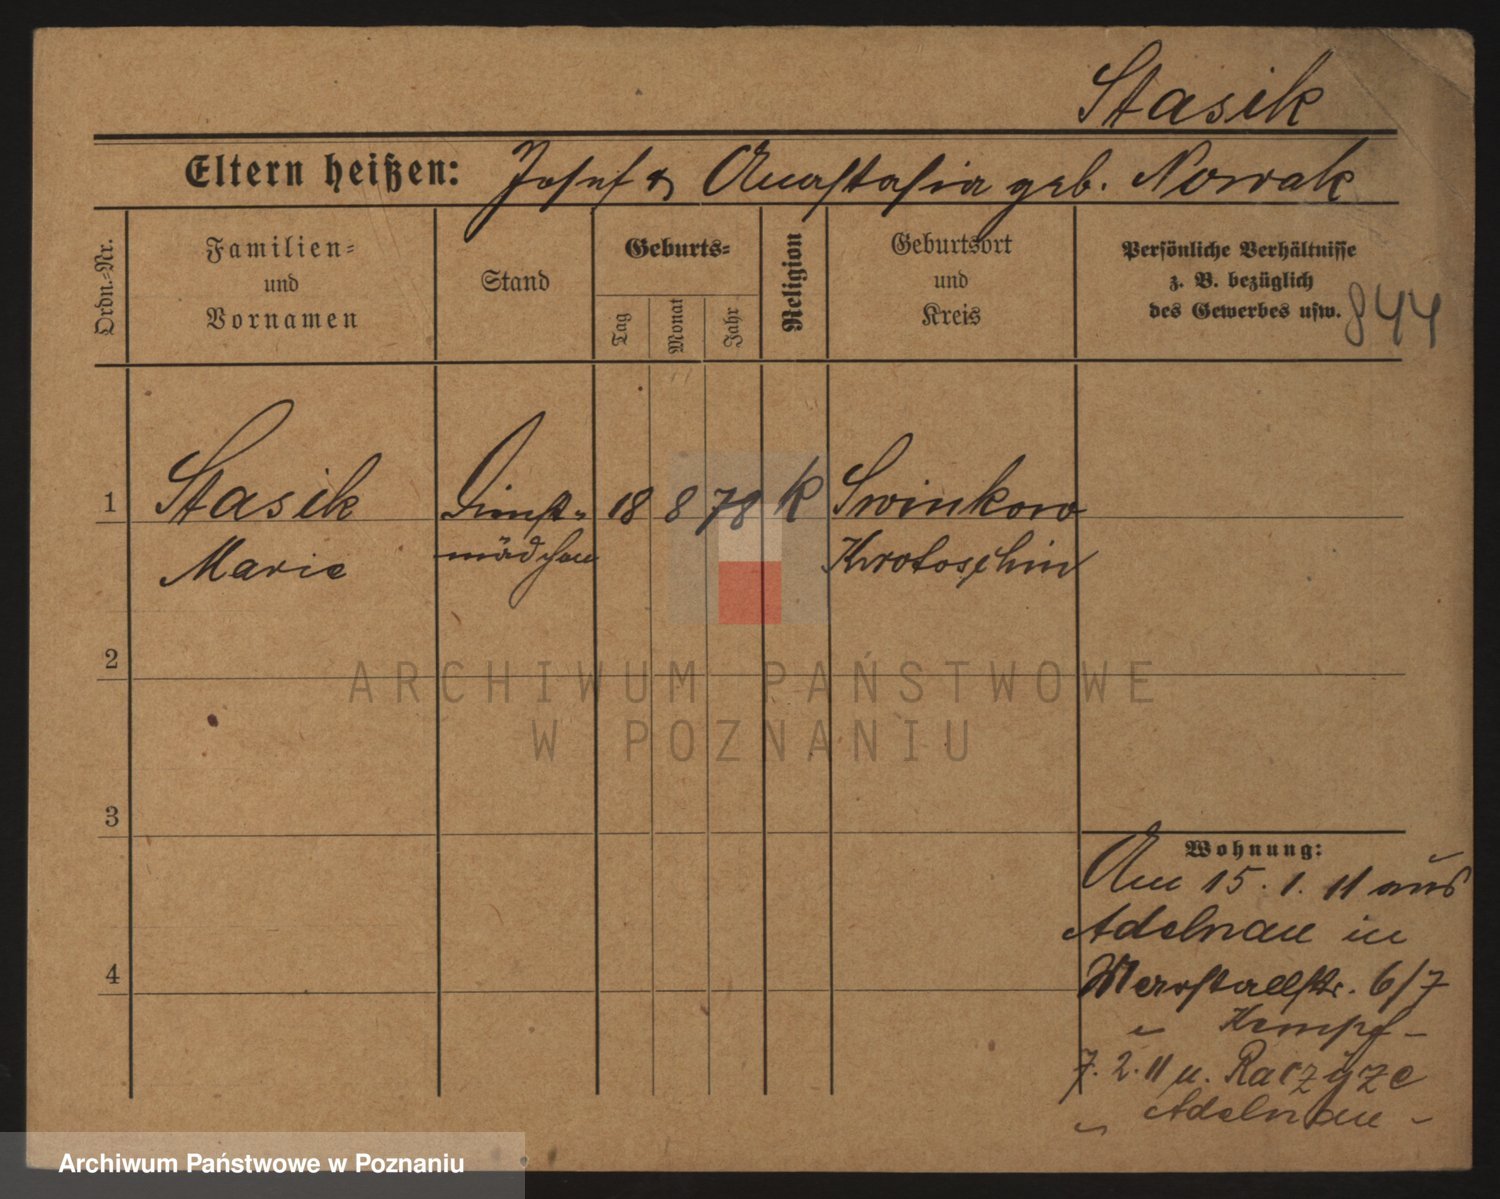 Stasik
Eltern heißen: Josef & Anastasia geb. Nowak
Ordn.-Nr.
Familien-
und
Vornamen
Stand
Geburts-
Tag
Monat
Jahr
Religion
Geburtsort
und
Kreis
Persönliche Verhältnisse
z. B. bezüglich
des Gewerbes usw.
844
1 Stasik Dienst- 18 8 78 k Swinkow
Marie mädchen Krotoschin
2
ARCHIWUM PAŃSTWOWE
W POZNANIU
3
Wohnung:
Am 15. 1. 11 aus
Adelnau in
4
Marstallstr. 6/7
Kempf
7. 2. 11 n. Raczyze
Adelnau
Archiwum Państwowe w Poznaniu